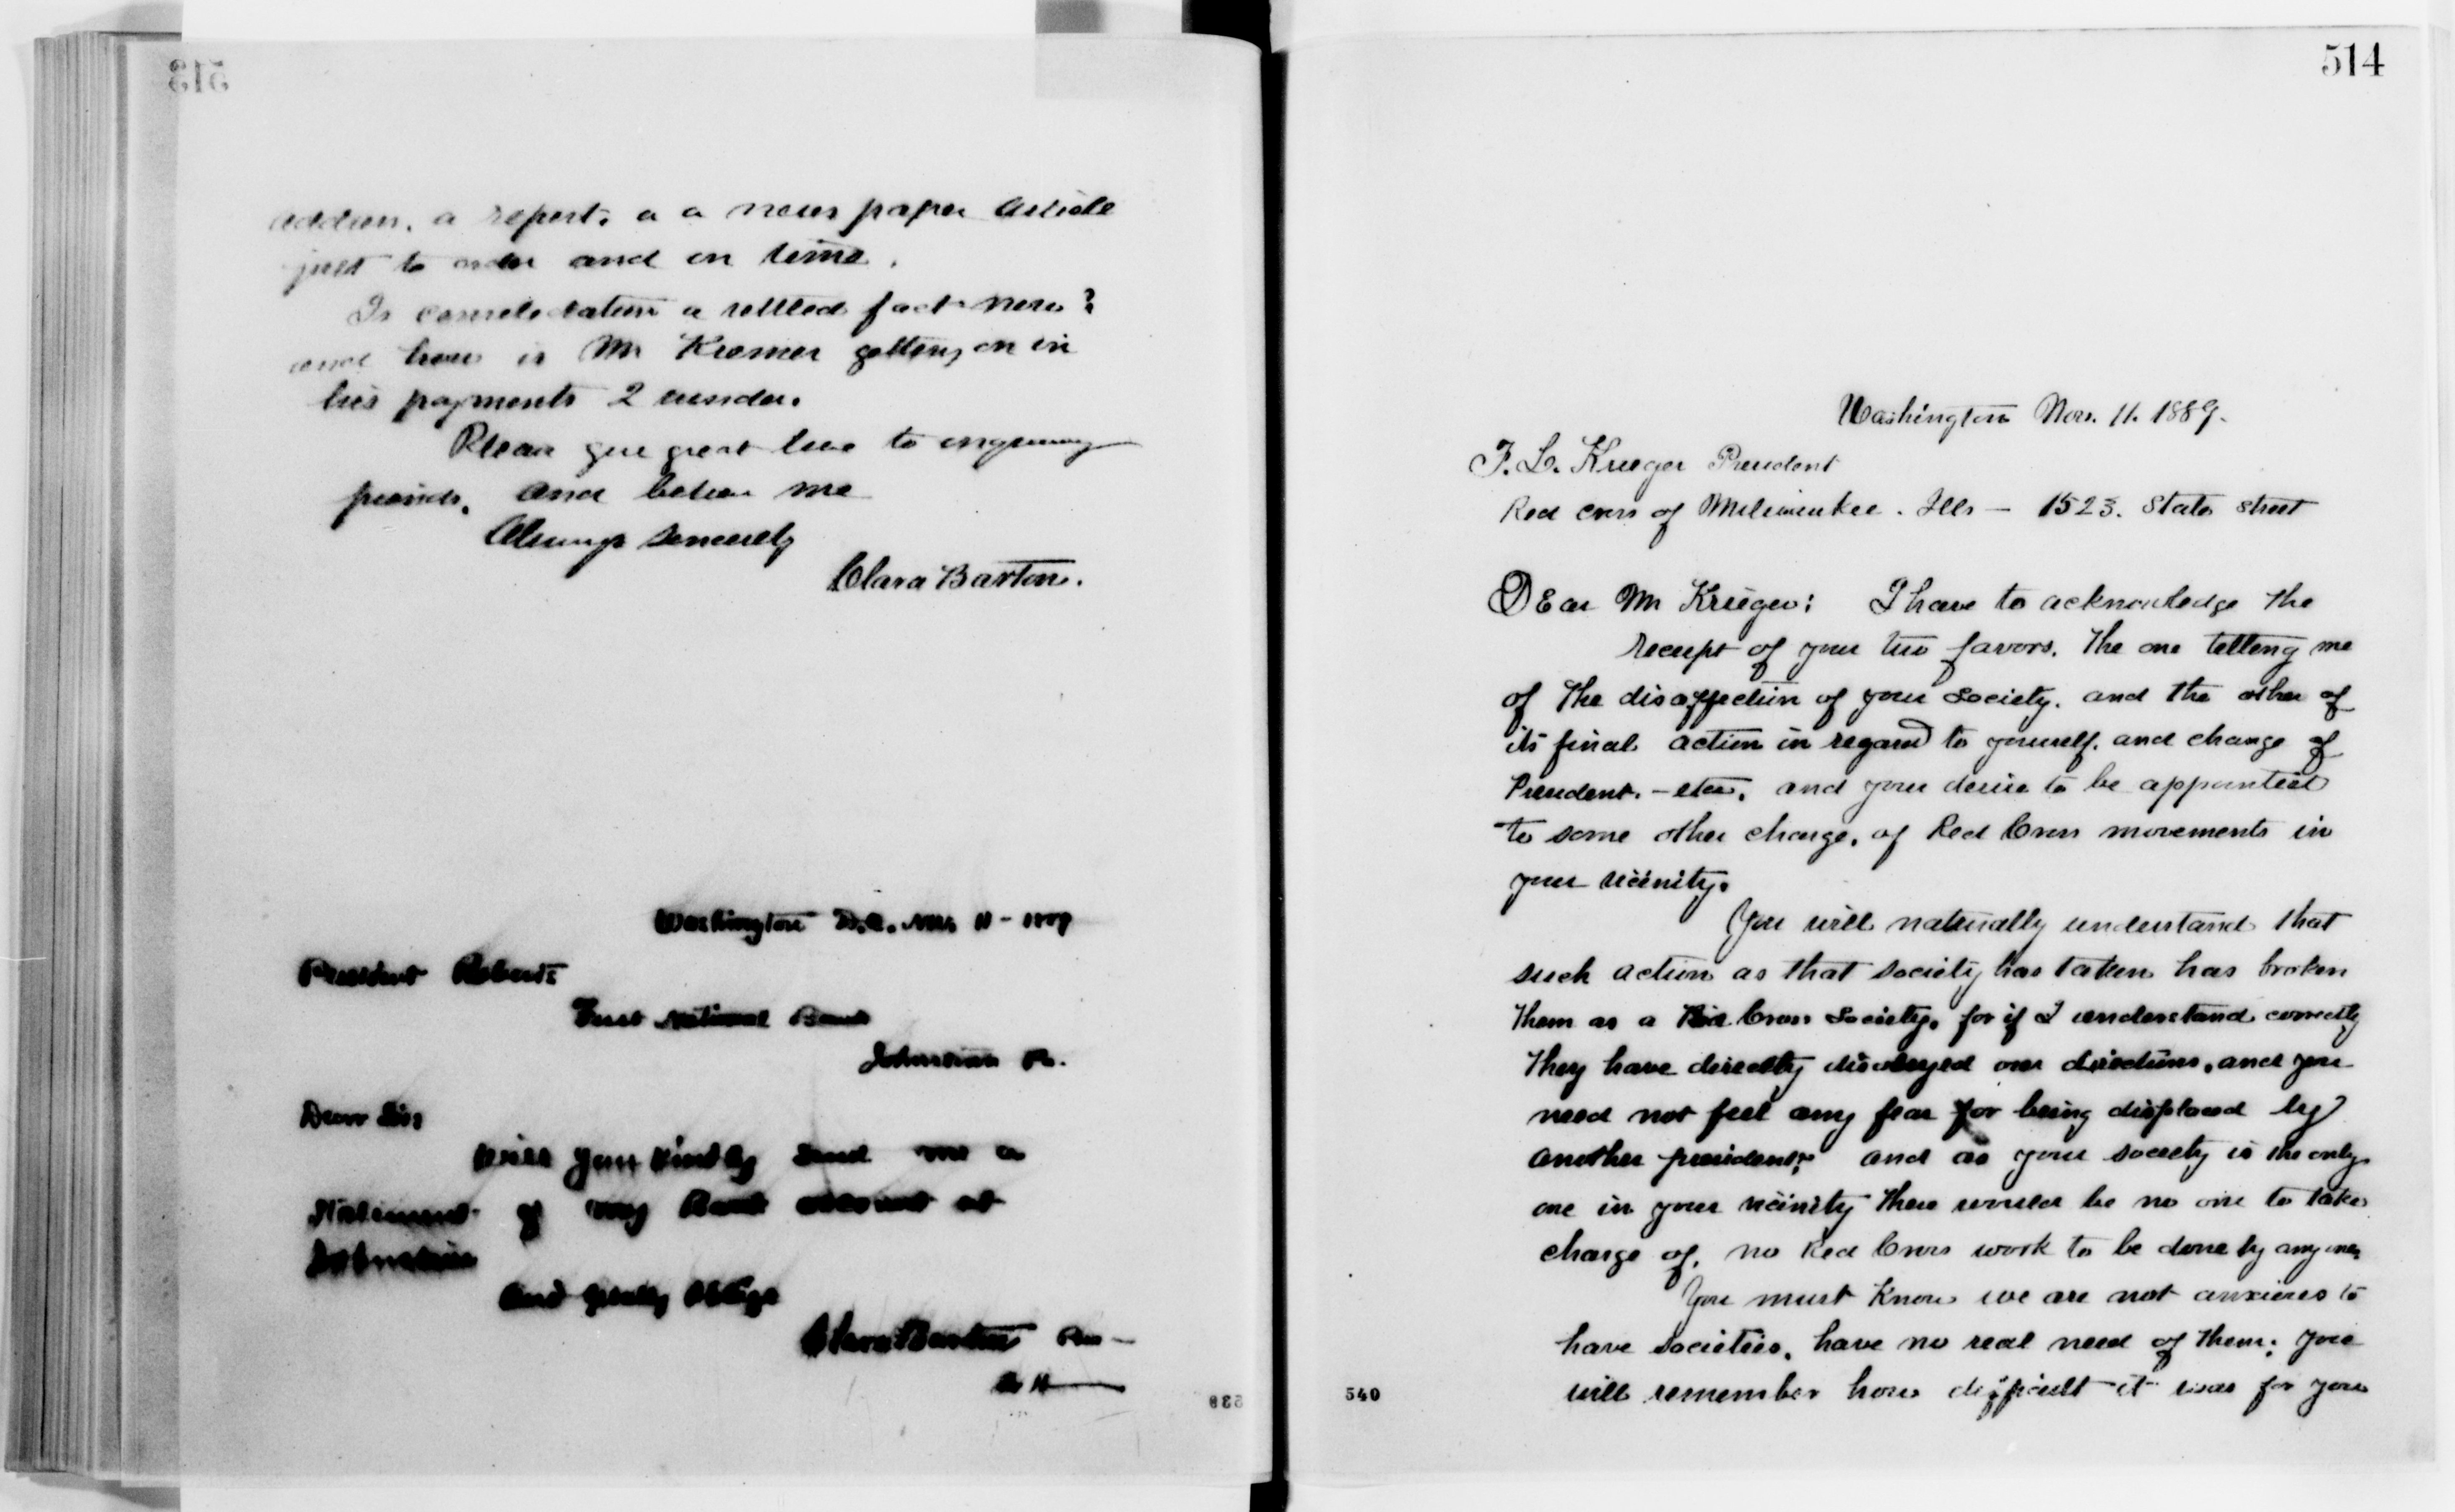 513
address. a report. a a news paper article
just to order and on time.
Is consolidation a settled fact now?
and how is Mr Kremer getting on in
his payments I wonder.
Please give great love to enquiring
friends. and believe me
Always sincerely
Clara Barton.
Washington D.C. Nov. 11 - 1889
President Roberts
First National Bank
Johnstown Pa.
Dear Sir
Will you kindly send me a
statement of my Bank account at
Johnstown
and greatly oblige
Clara Barton Pres —
538
514
Washington Nov. 11. 1889.
F. L. Krueger President
Red cross of Milwaukee. Ills — 1523. State Street
DEar Mr Krueger: I have to acknowledge the
receipt of your two favors. The one telling me
of the disaffection of your society. and the other of
its final action in regard to yourself. and change of
President. - etc. and your desire to be appointed
to some other charge. of Red Cross movements in
your vicinity.
You will naturally understand that
such action as that society has taken has broken
them as a Red Cross Society. for if I understand correctly
they have directly disobeyed our directions. and you
need not feel any fear for being displaced by
another president; and as your society is the only
one in your vicinity there would be no one to take
charge of. no Red Cross work to be done by any one.
You must know we are not anxious to
have societies. have no real need of them; you
will remember how difficult it was for you
540